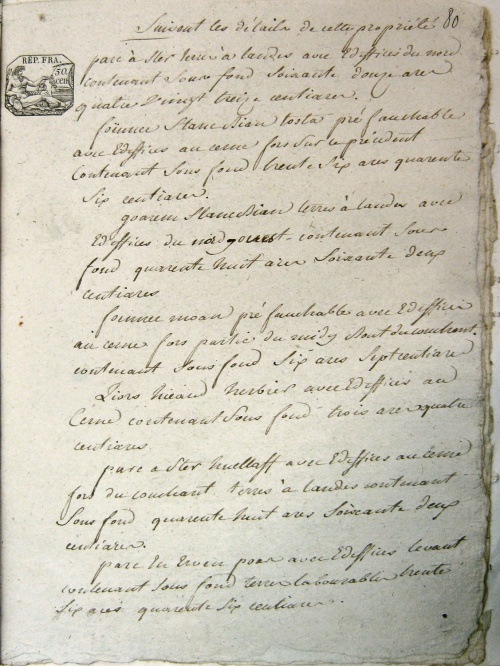 Suivent les détails de cette propriété 80
RÉP. FRA.
50
CEN
parc à Ster terre à landes avec Ediffices du nord
contenant Sous fond Soixante douze ares
quatre Vingt treize centiares.
foënnec Stanc Bian tosta pré fauchable
avec Ediffices au cerne fors sur le précédent
Contenant Sous fond trente Six ares quarente
Six centiares.
goarem Stanc Bian terres à landes avec
Ediffices du nord contenant Sous
fond quarente huit ares Soixante deux
centiares
foennec moan pré fauchable avec Ediffices
au cerne fors partie du midy du couchant
contenant Sous fond Six ares Sept centiares
Liors herbier avec Ediffices au
Cerne contenant Sous fond trois ares quatre
centiares
parc a Ster huellaff avec Ediffices au Cerne
fors du couchant terres à landes contenant
Sous fond quarente huit ares Soixante deux
centiares.
parc avec Ediffices levant
contenant Sous fond terres labourables trente
Six ares quarente Six centiares.